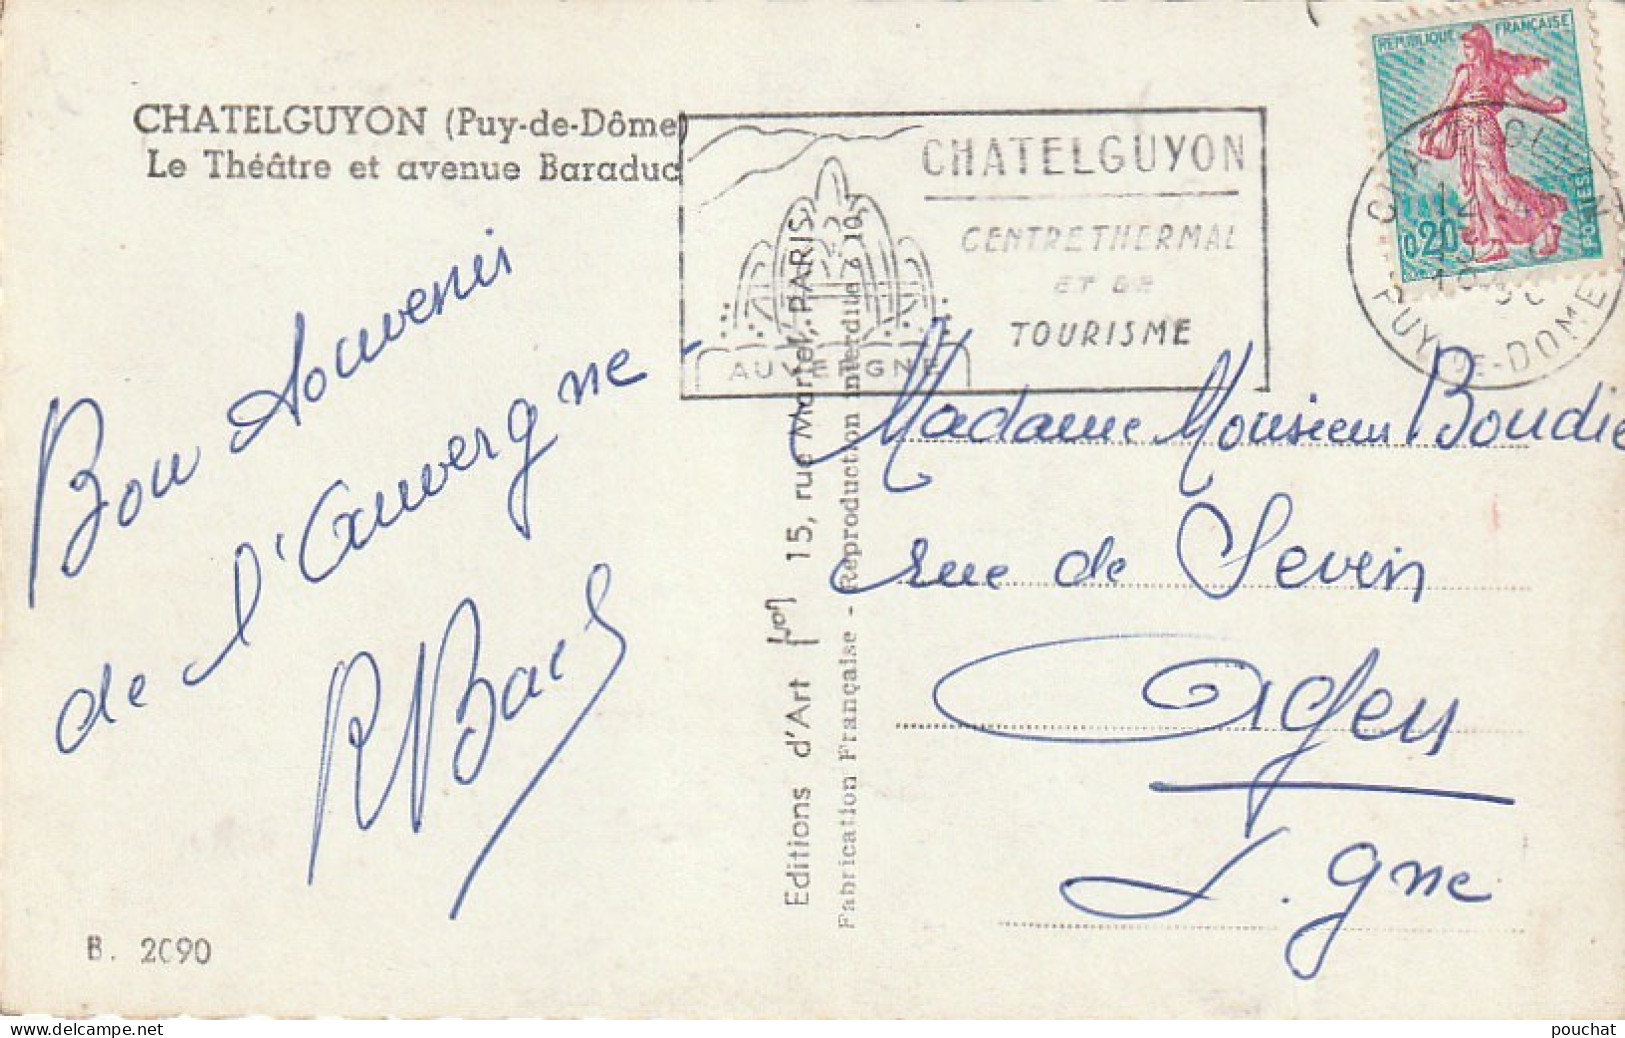 CHATELGUYON (Puy-de-Dôme)
Le Théâtre et avenue Baraduc
Bon Souvenir
de l'Auvergne -
B. 2090
CHATELGUYON
CENTRE THERMAL
ET DE
TOURISME
AUVERGNE
REPUBLIQUE FRANÇAISE
0,20
POSTES
PUY-DE-DOME
Editions d'Art 15, rue Martel, PARIS 10
Fabrication Française - Reproduction interdite
Madame Monsieur Boudie
rue de Sevin
Agen
L. gne
pouchat